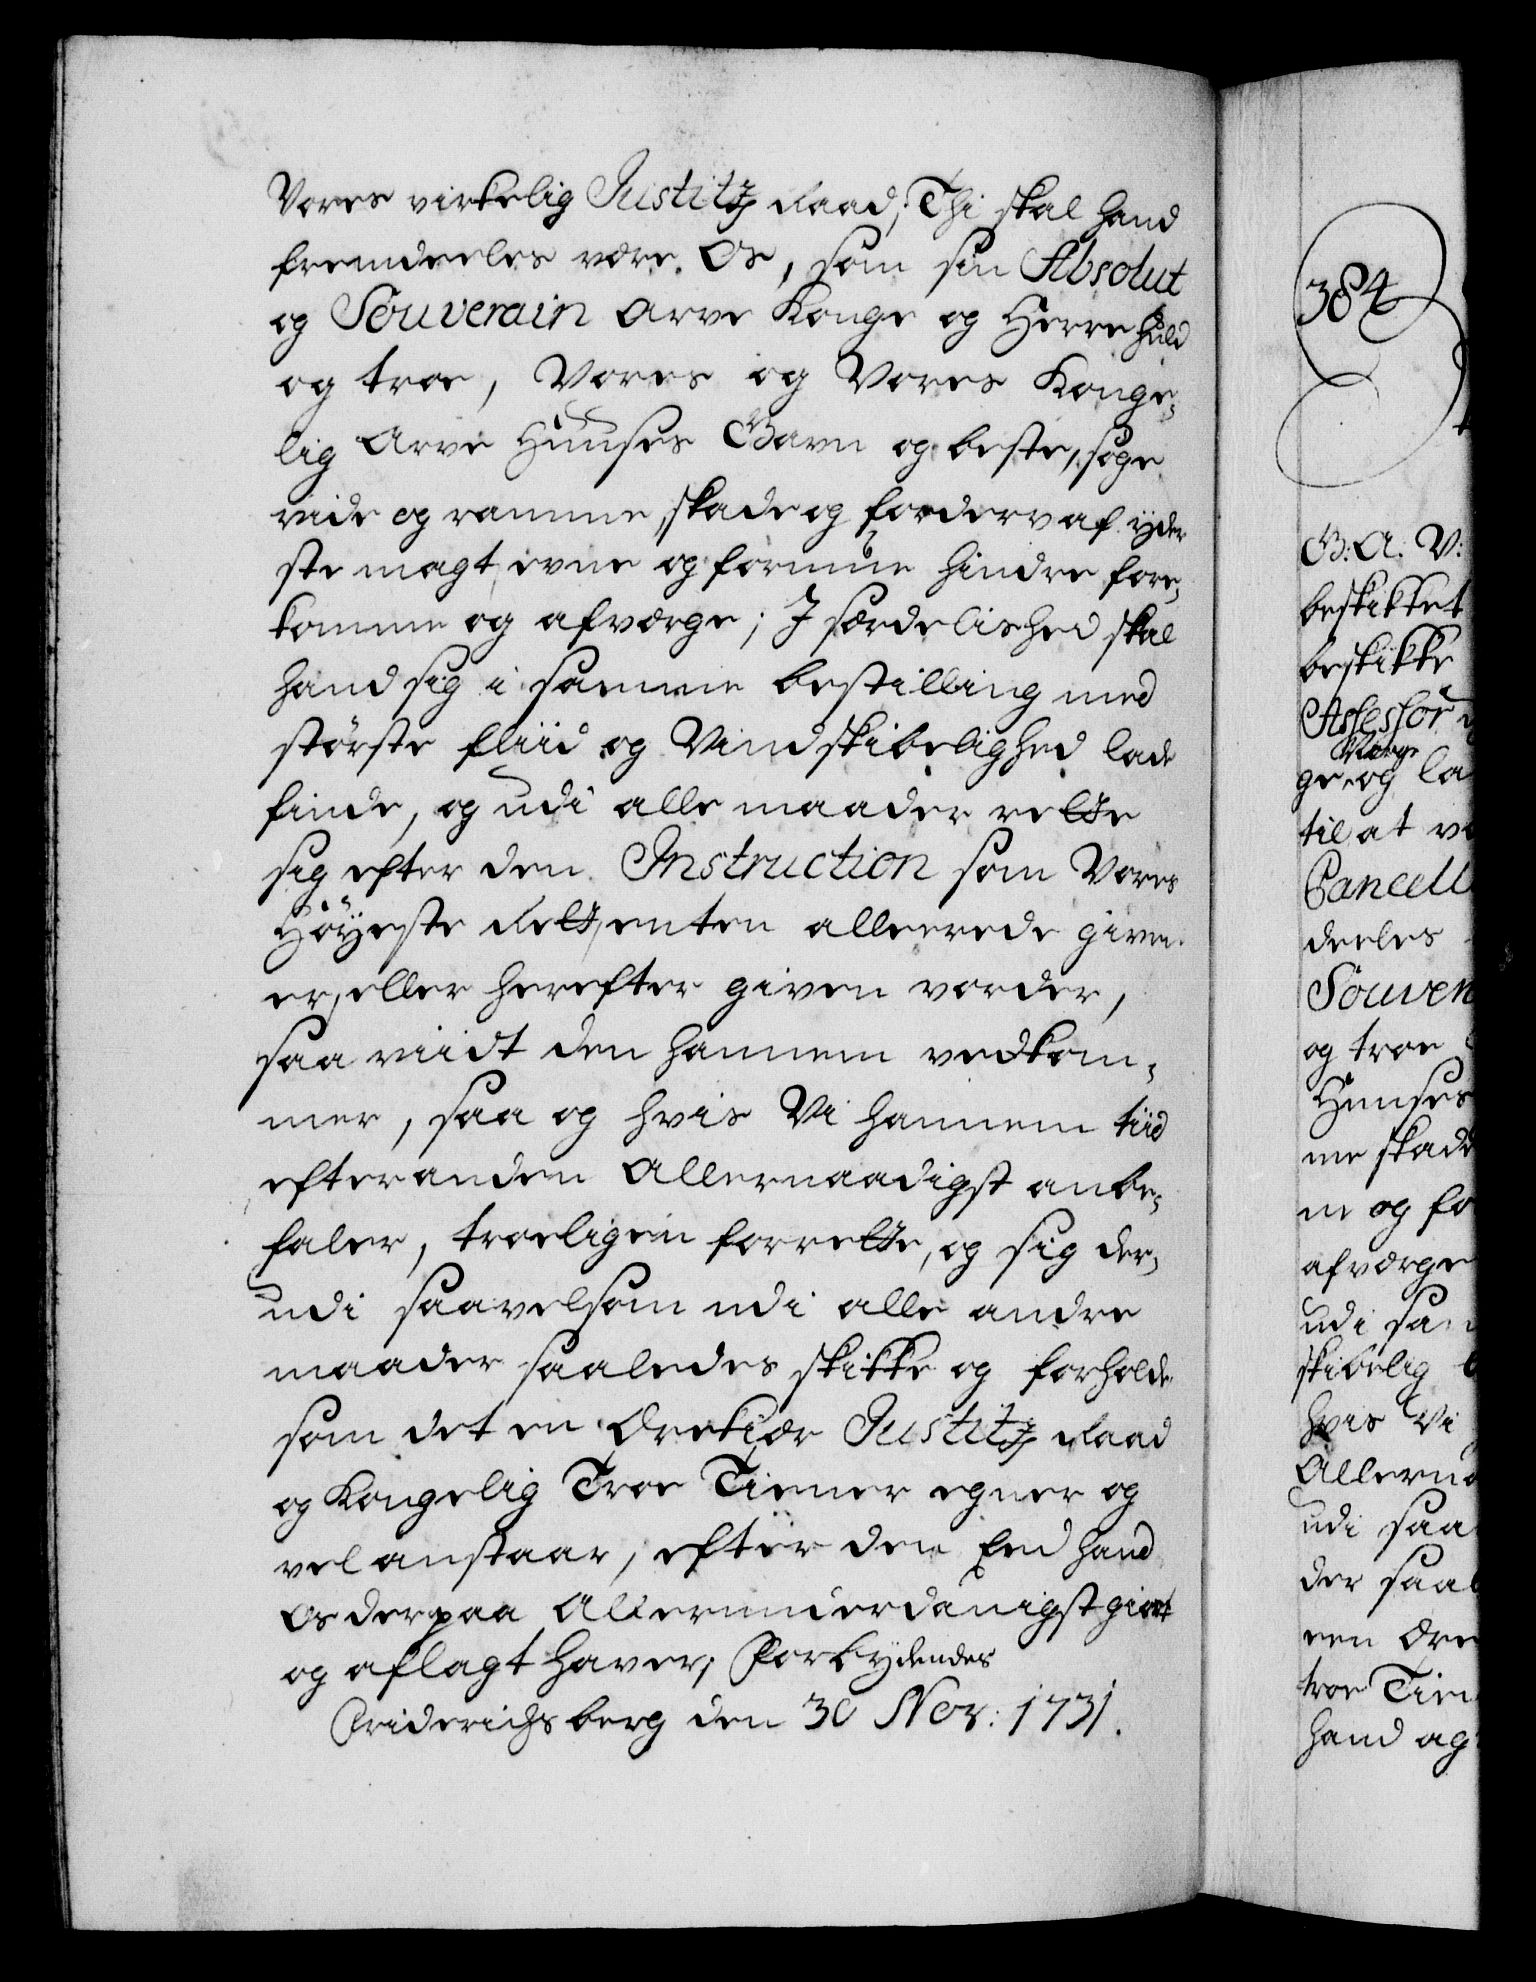 Vores virkelig Justitz Raad; Thi skal hand
fremdeeles være Os, som sin Absolut
og Souverain Arve Konge og Herre huld
og troe, Vores og Vores Konge-
lig Arve Huuses Gavn og beste, søge
vide og ramme, skade og forderv af yder
ste magt, evne og formue hindre fore-
komme og afværge; J særdelished skal
hand sig i samme bestilling med
største fliid og Vindskibelighed lade
finde, og udi alle maader rette
sig efter den Instruction som Vores
Höyeste Rett, enten allerede given
er, eller herefter given vorder,
saa viidt den hannem vedkom-
mer, saa og hvis Vi hannem tiid
efter anden Allernaadigst anbe-
faler, troeligen forrette, og sig der-
udi saavelsom udi alle andre
maader saaledes skikke og forholde
som det en Ærekiær Justitz Raad
og Kongelig Troe Tiener egner og
vel anstaar, efter den Eed hand
Os derpaa Allerunderdanigst giort
og aflagt haver, Forbydendes
Friderichsberg den 30 Nov: 1731.
384
G: A: V:
beskikket
beskikke
Assessor
Norge
ge og la
til at væ
Cancell
deeles
Souver
og troe
Huuses
me skade
ne og fo
afværge
udi sam
skibelig
hvis Vi
Allerna
udi saa
der saal
een Ære
troe Tien
hand og